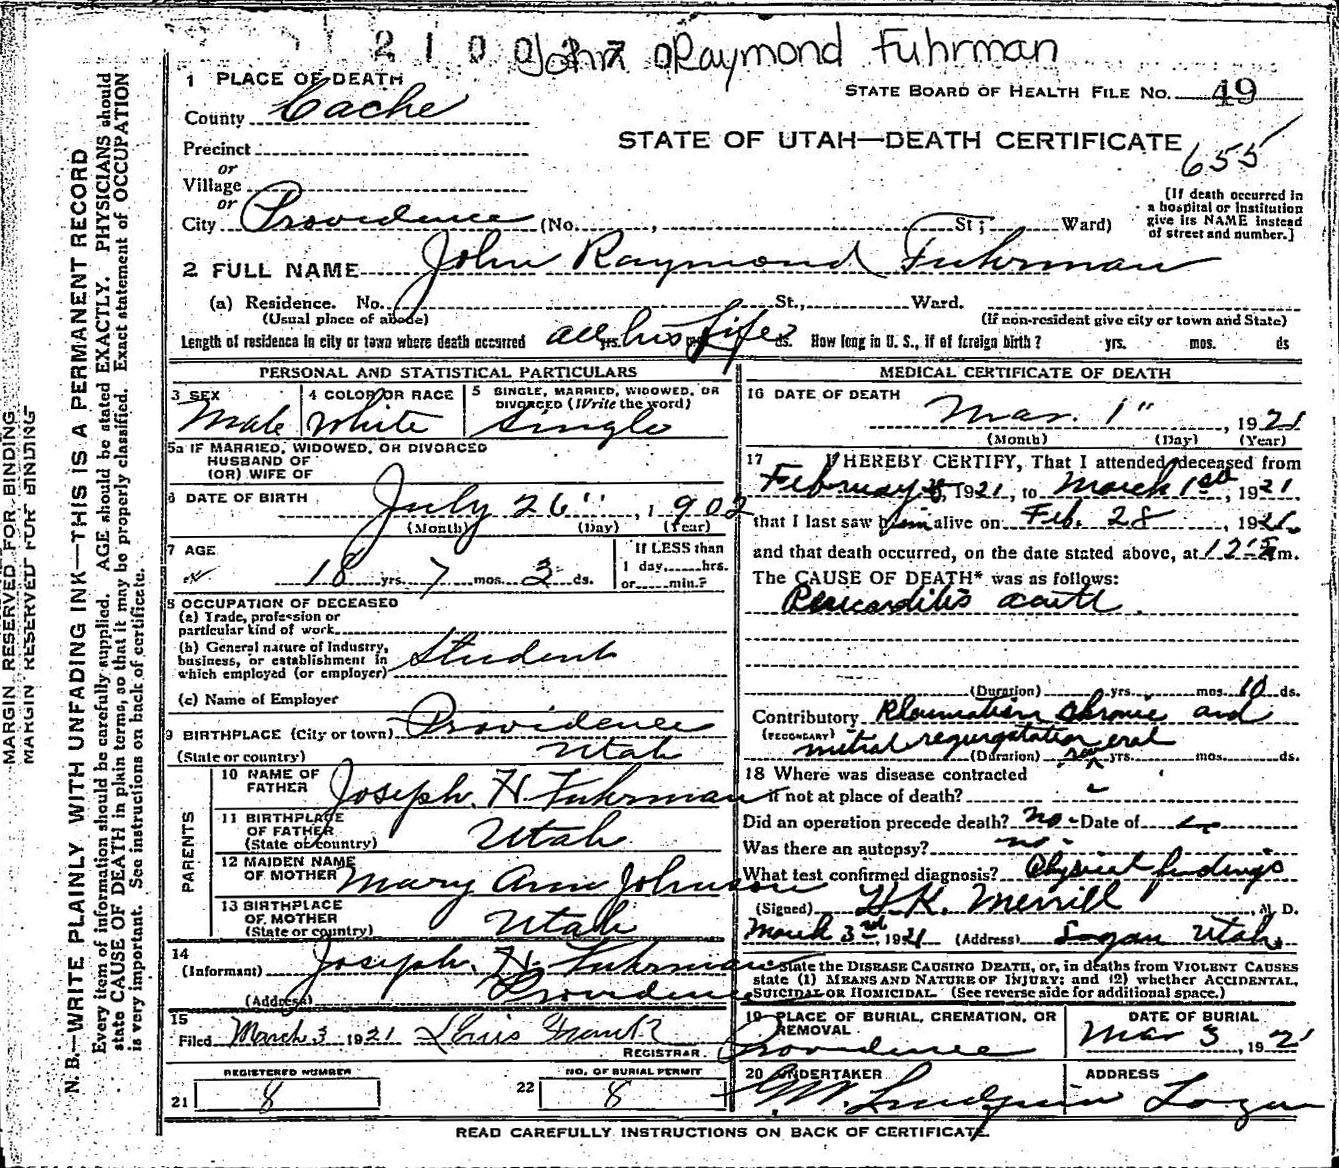 John Raymond Fuhrman
1 PLACE OF DEATH
STATE BOARD OF HEALTH FILE NO. 49
County Cache
STATE OF UTAH—DEATH CERTIFICATE
655
Precinct
or
Village
or
City Providence (No. , St; Ward)
[If death occurred in
a hospital or institution
give its NAME instead
of street and number.]
2 FULL NAME John Raymond Fuhrman
(a) Residence. No. St., Ward.
(Usual place of abode) (If non-resident give city or town and State)
Length of residence in city or town where death occurred all his life yrs. mos. ds. How long in U. S., if of foreign birth? yrs. mos. ds
PERSONAL AND STATISTICAL PARTICULARS
3 SEX Male
4 COLOR OR RACE White
5 SINGLE, MARRIED, WIDOWED, OR
DIVORCED (Write the word)
Single
5a IF MARRIED, WIDOWED, OR DIVORCED
HUSBAND OF
(OR) WIFE OF
6 DATE OF BIRTH July 26", 1902
(Month) (Day) (Year)
7 AGE
18 yrs. 7 mos. 3 ds.
If LESS than
1 day, hrs.
or min.?
8 OCCUPATION OF DECEASED
(a) Trade, profession or
particular kind of work
(b) General nature of Industry,
business, or establishment in
which employed (or employer) Student
(c) Name of Employer
9 BIRTHPLACE (City or town) Providence
(State or country) Utah
PARENTS
10 NAME OF
FATHER Joseph. H. Fuhrman
11 BIRTHPLACE
OF FATHER
(State or country) Utah
12 MAIDEN NAME
OF MOTHER Mary Ann Johnson
13 BIRTHPLACE
OF MOTHER
(State or country) Utah
14
(Informant) Joseph. H. Fuhrman
(Address) Providence
15
Filed March 3 1921
REGISTRAR
REGISTERED NUMBER
21 8
NO. OF BURIAL PERMIT
22 8
MEDICAL CERTIFICATE OF DEATH
16 DATE OF DEATH
Mar. 1", 1921
(Month) (Day) (Year)
17 I HEREBY CERTIFY, That I attended deceased from
February , 1921, to March 1st, 1921
that I last saw him alive on Feb. 28, 1921
and that death occurred, on the date stated above, at m.
The CAUSE OF DEATH* was as follows:
Pericarditis acute
(Duration) yrs. mos. 10 ds.
Contributory Rheumatism chronic and
(SECONDARY) mitral regurgitation
(Duration) several yrs. mos. ds.
18 Where was disease contracted
if not at place of death?
Did an operation precede death? no - Date of
Was there an autopsy? no -
What test confirmed diagnosis? Physical findings
(Signed) H.K. Merrill, M. D.
March 3rd, 1921 (Address) Logan Utah
*State the DISEASE CAUSING DEATH, or, in deaths from VIOLENT CAUSES
state (1) MEANS AND NATURE OF INJURY; and (2) whether ACCIDENTAL,
SUICIDAL OR HOMICIDAL. (See reverse side for additional space.)
19 PLACE OF BURIAL, CREMATION, OR
REMOVAL
Providence
DATE OF BURIAL
Mar 3, 192
20 UNDERTAKER
ADDRESS
Logan
READ CAREFULLY INSTRUCTIONS ON BACK OF CERTIFICATE.
MARGIN RESERVED FOR BINDING
MARGIN RESERVED FOR BINDING
N. B.—WRITE PLAINLY WITH UNFADING INK—THIS IS A PERMANENT RECORD
Every item of information should be carefully supplied. AGE should be stated EXACTLY. PHYSICIANS should
state CAUSE OF DEATH in plain terms, so that it may be properly classified. Exact statement of OCCUPATION
is very important. See instructions on back of certificate.